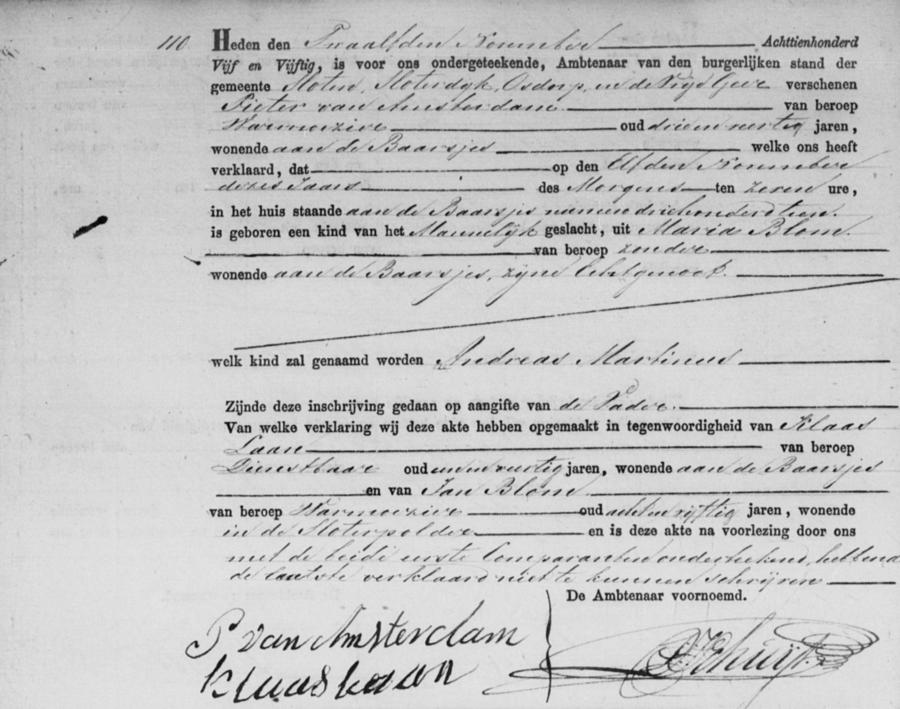 110 Heden den Twaalfden November Achttienhonderd
Vijf en Vijftig, is voor ons ondergeteekende, Ambtenaar van den burgerlijken stand der
gemeente Sloten, Sloterdyk, Osdorp, en de Vrije Geer verschenen
Pieter van Amsterdam van beroep
Warmoezier oud drie en veertig jaren,
wonende aan de Baarsjes welke ons heeft
verklaard, dat op den Elfden November
dezes Jaars des Morgens ten zeven ure,
in het huis staande aan de Baarsjes nummer driehonderd tien
is geboren een kind van het Mannelijk geslacht, uit Maria Blom
van beroep zonder
wonende aan de Baarsjes, zyne Echtgenoot.
welk kind zal genaamd worden Andreas Martinus
Zijnde deze inschrijving gedaan op aangifte van de Vader.
Van welke verklaring wij deze akte hebben opgemaakt in tegenwoordigheid van Klaas
Laan van beroep
Dienstbaar oud een en veertig jaren, wonende aan de Baarsjes
en van Jan Blom
van beroep Warmoezier oud acht en vyftig jaren, wonende
in de Sloterpolder en is deze akte na voorlezing door ons
met de beide eerste Comparanten ondertekend, hebbende
de laatste verklaard niet te kunnen schrijven
De Ambtenaar voornoemd.
P van Amsterdam
Klaas Laan